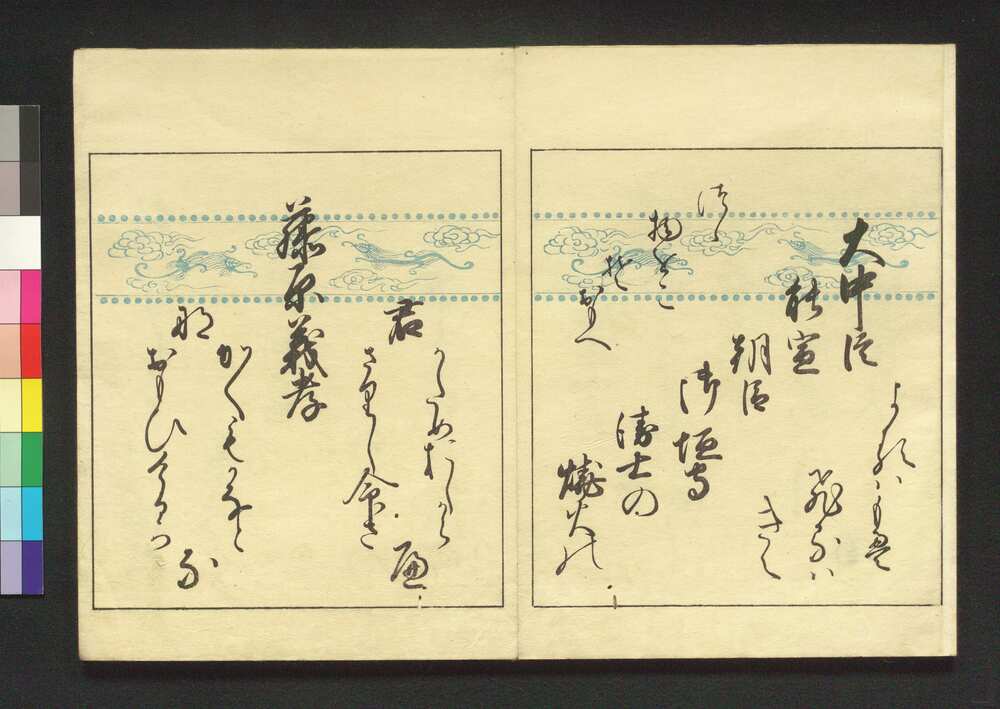 大中臣
能宣
朝臣
御垣守
衛士の
焼火の
よるハもえ
ひるハ
きえ
つゝ
物をこ
そ
おもへ
藤原義孝
君
かためおしから
さりし命さ
へ
な
かくもかなと
おもひけるか
な